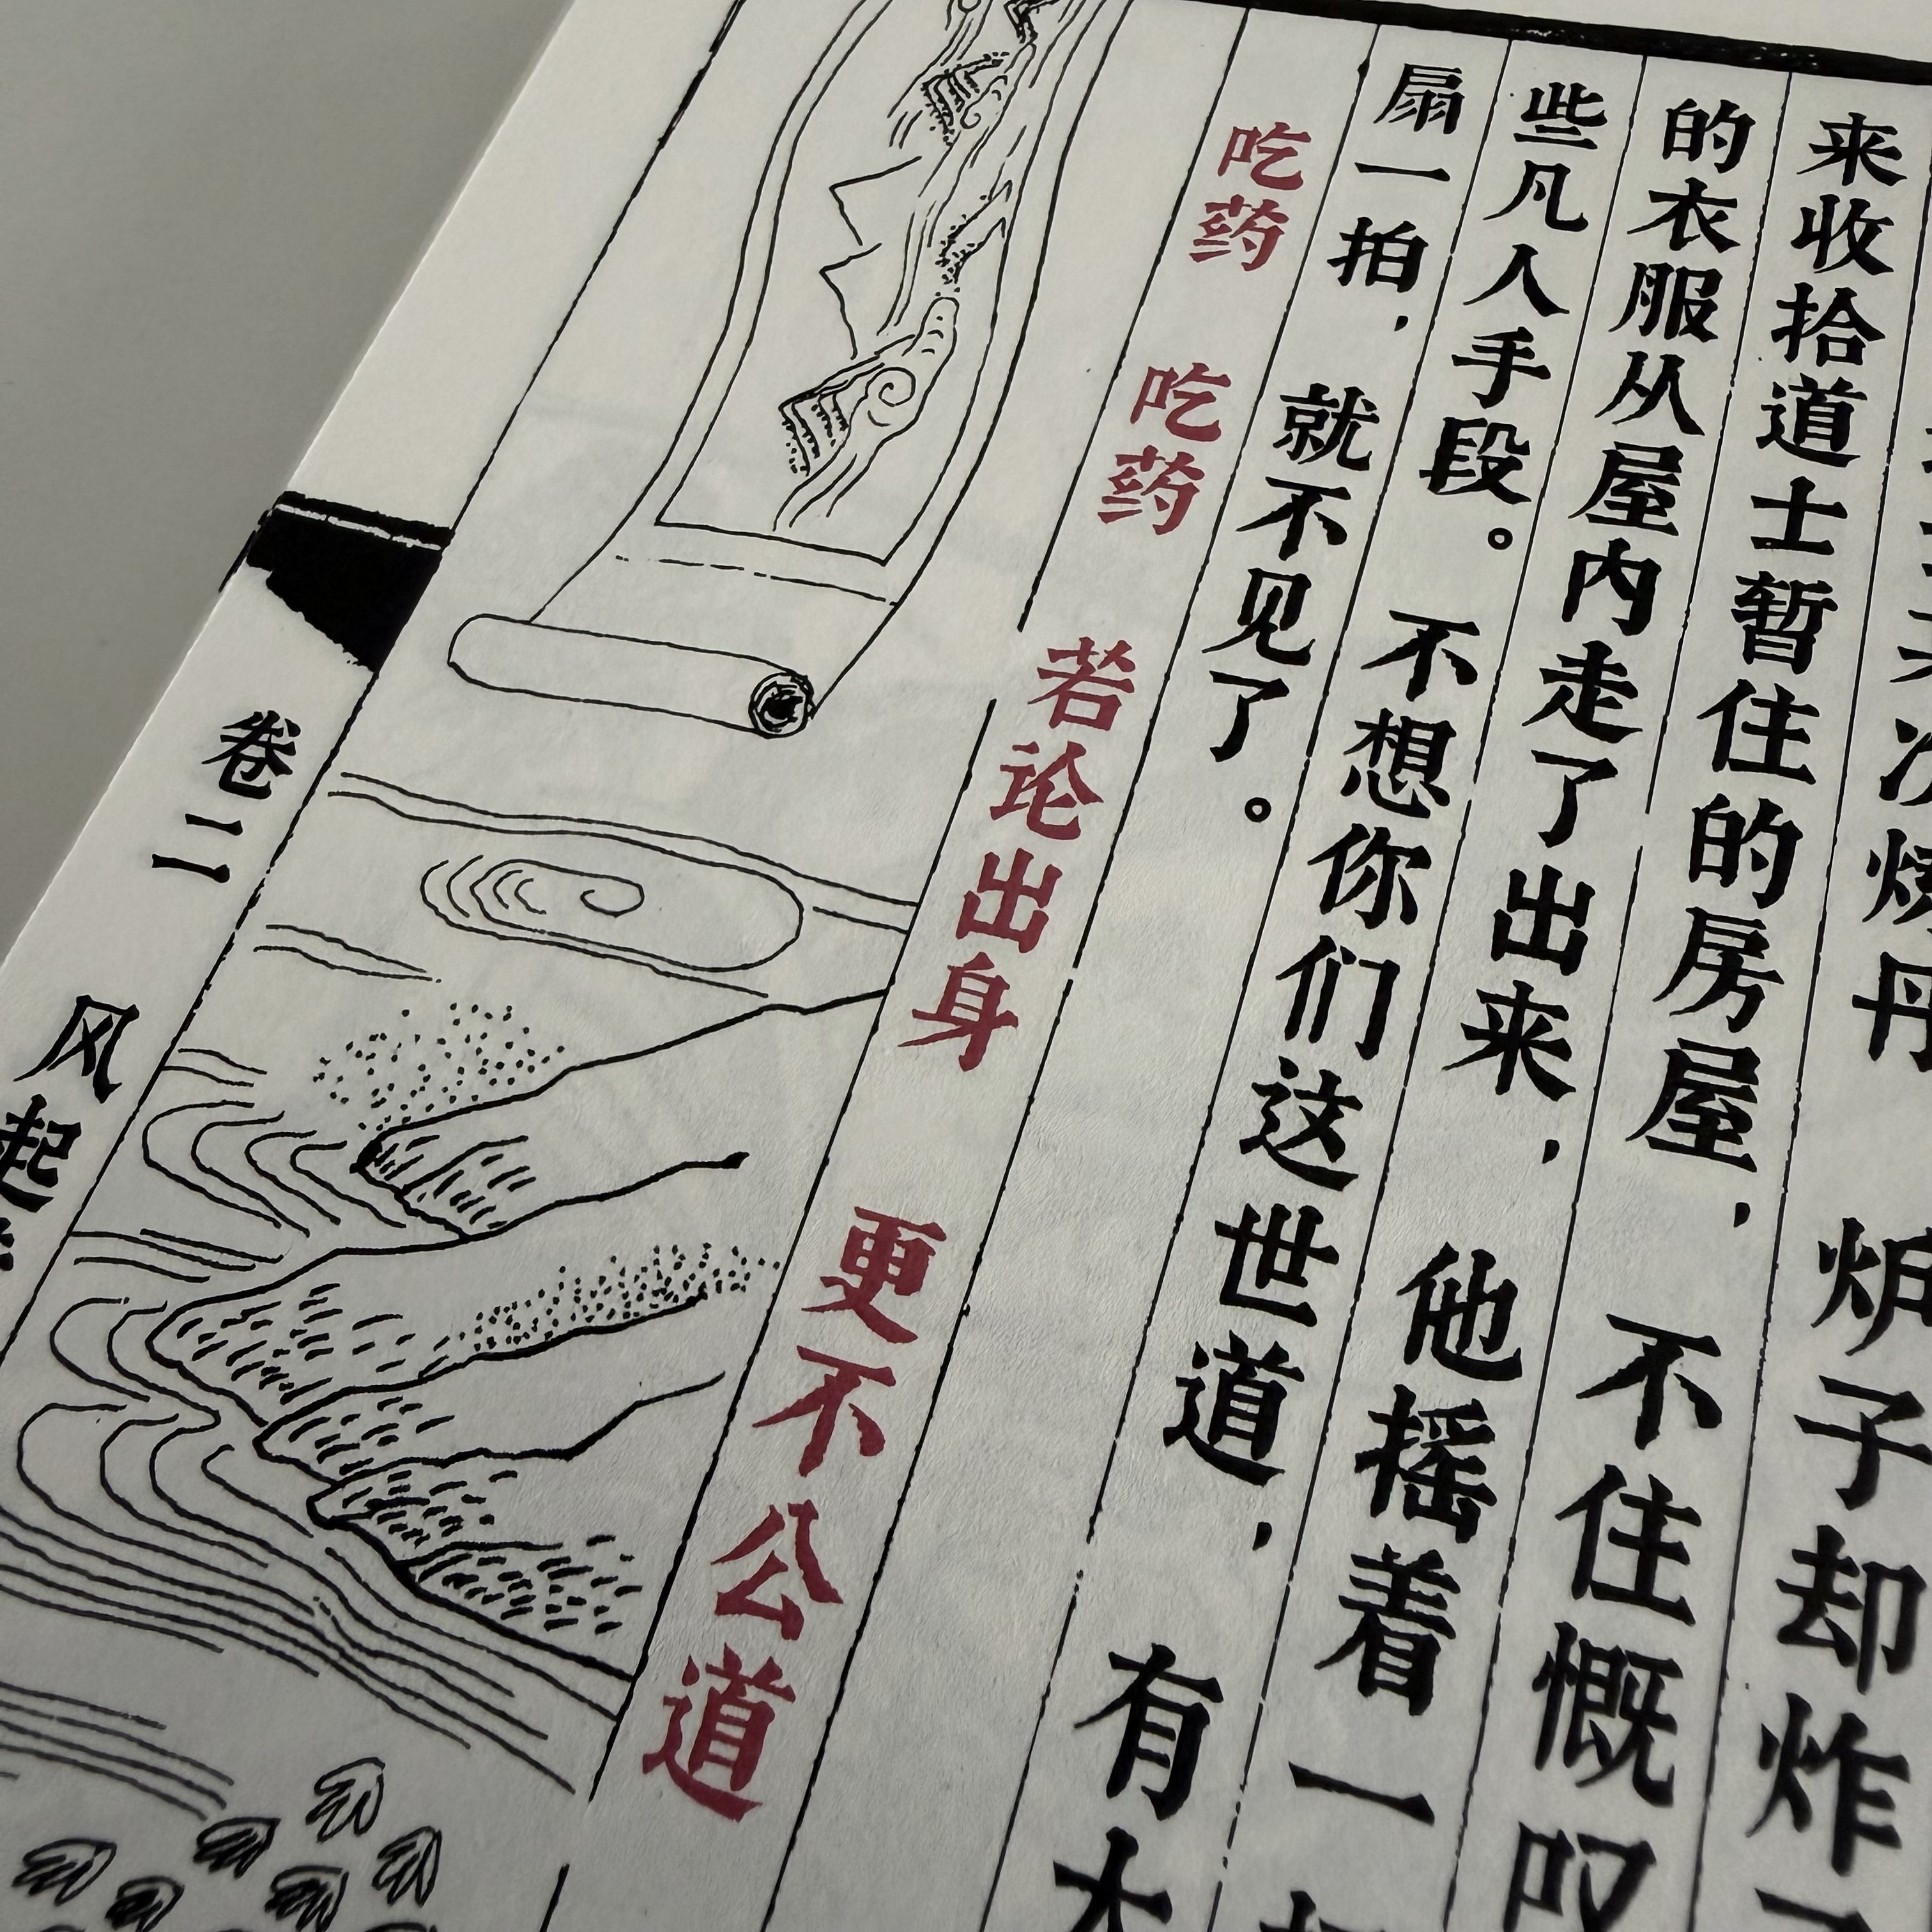 丹 炉子却炸
来收拾道士暂住的房屋，不住慨叹
的衣服从屋内走了出来，他摇着一
些凡人手段。不想你们这世道，有
扇一拍，就不见了。
吃药 吃药 若论出身 更不公道
卷二 风起